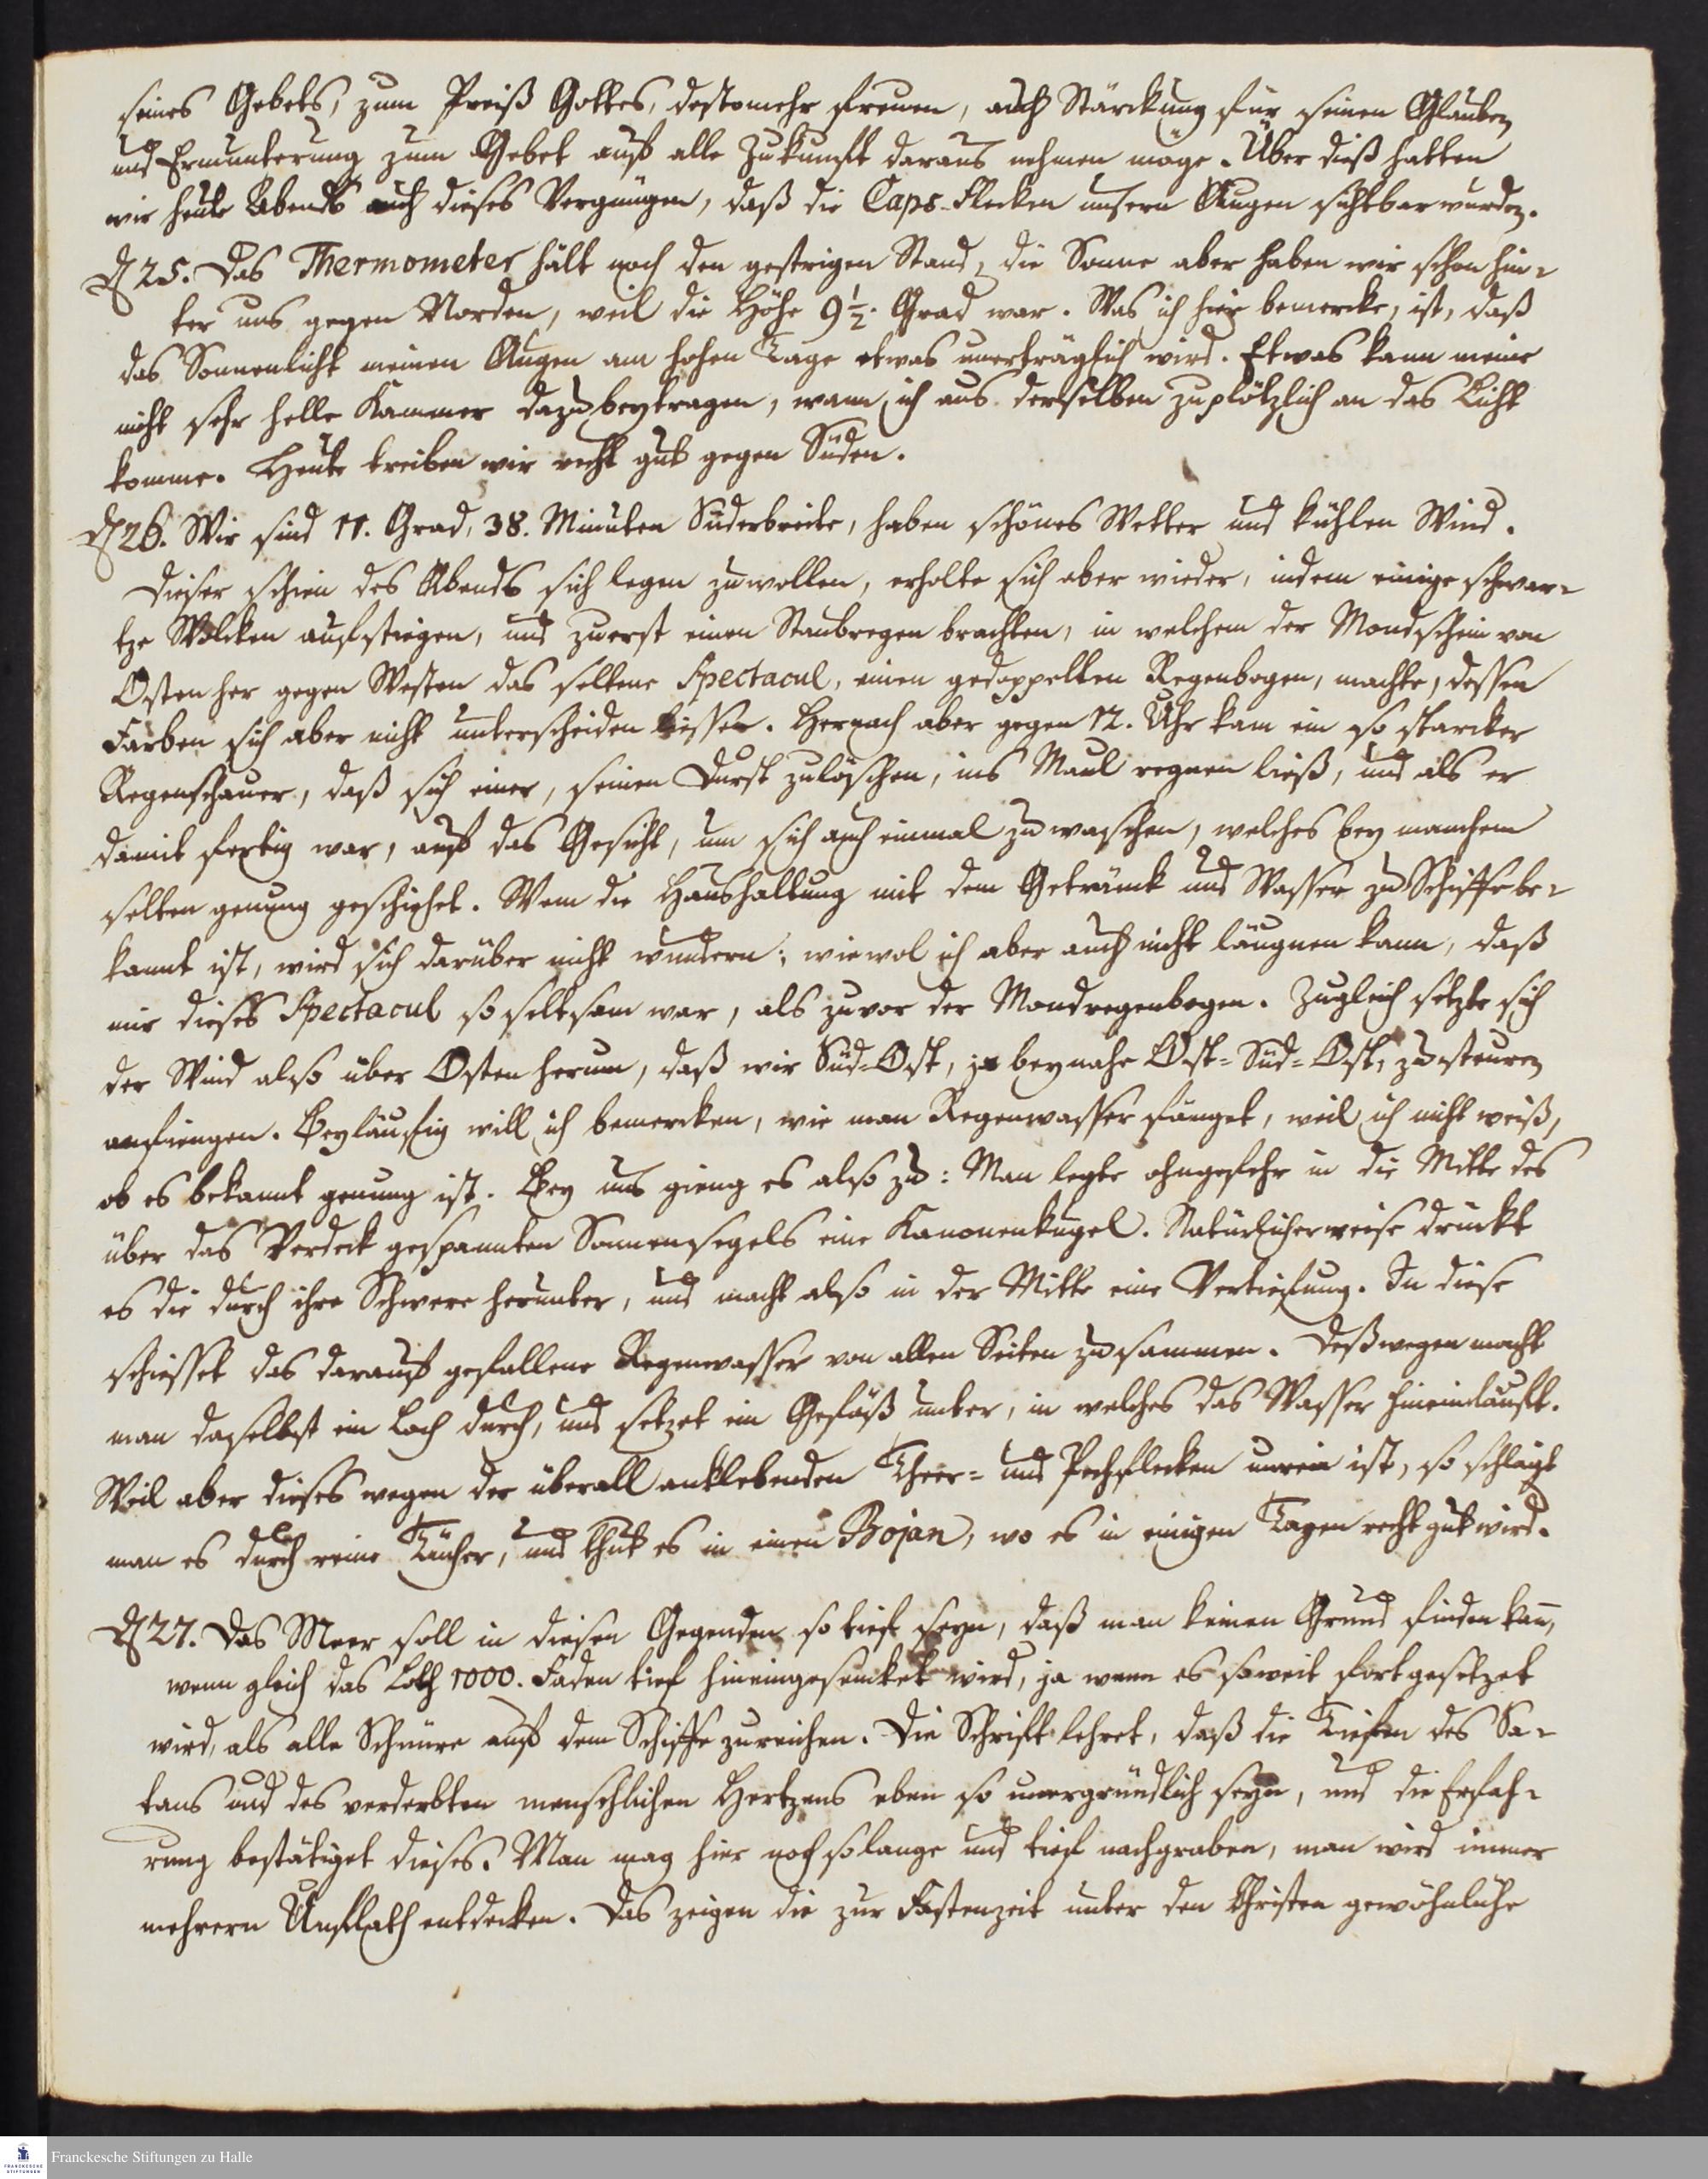 seines Gebets, zum Preiß Gottes, destomehr freuen, auch Stärckung für seinen Glauben
und Ermunterung zum Gebet auf alle Zukunft daraus nehmen möge. Über dieß hatten
wir heute Abends auch dieses Vergnügen, daß die Caps-Flecken unsern Augen sichtbar wurden.
D 25. Das Thermometer hält noch den gestrigen Stand, die Sonne aber haben wir schon hin-
ter uns gegen Norden, weil die Höhe 9 1/2. Grad war. Was ich hier bemercke, ist, daß
das Sonnenlicht meinen Augen am hohen Tage etwas unerträglich wird. Etwas kann meine
nicht sehr helle Kammer dazu beytragen, wann ich aus derselben zu plötzlich an das Licht
komme. Heute treiben wir recht gut gegen Süden.
D 26. Wir sind 11. Grad, 38. Minuten Süderbreite, haben schönes Wetter und kühlen Wind.
Dieser schien des Abends sich legen zu wollen, erholte sich aber wieder, indem einige schwar-
tze Wolcken aufstiegen, und zuerst einen Staubregen brachten, in welchem der Mondschein von
Osten her gegen Westen das seltene Spectacul, einen gedoppelten Regenbogen, machte, dessen
Farben sich aber nicht unterscheiden liessen. Hernach aber gegen 12. Uhr kam ein so starcker
Regenschauer, daß sich einer, seinen Durst zu löschen, ins Maul regnen ließ, und als er
damit fertig war, auf das Gesicht, um sich auch einmal zu waschen, welches bey manchem
selten genung geschiehet. Wem die Haushaltung mit dem Getränck und Wasser zu Schiffe be-
kannt ist, wird sich darüber nicht wundern; wiewol ich aber auch nicht läugnen kann, daß
mir dieses Spectacul so seltsam war, als zuvor der Mondregenbogen. Zugleich setzte sich
der Wind also über Osten herum, daß wir Süd-Ost, ja beynahe Ost-Süd-Ost, zu steuren
anfiengen. Beyläufig will ich bemercken, wie man Regenwasser fänget, weil ich nicht weiß,
ob es bekannt genung ist. Bey uns gieng es also zu: Man legte ohngefehr in die Mitte des
über das Verdeck gespannten Sonnensegels eine Kanonenkugel. Natürlicherweise drückt
es die durch ihre Schwere herunter, und macht also in der Mitte eine Vertiefung. In diese
schiesset das darauf gefallene Regenwasser von allen Seiten zusammen. Deßwegen macht
man daselbst ein Loch durch, und setzet ein Gefäß unter, in welches das Wasser hineinläuft.
Weil aber dieses wegen der überall anklebenden Theer- und Pechflecken unrein ist, so schlägt
man es durch reine Tücher, und thut es in einen Bojan, wo es in einigen Tagen recht gut wird.
D 27. Das Meer soll in diesen Gegenden so tief seyn, daß man keinen Grund finden kann,
wenn gleich das Loth 1000. Faden tief hineingesencket wird, ja wenn es soweit fortgesetzet
wird, als alle Schnüre auf dem Schiffe zureichen. Die Schrift lehret, daß die Tiefen des Sa-
tans und des verderbten menschlichen Hertzens eben so unergründlich seyn, und die Erfah-
rung bestätiget dieses. Man mag hier noch so lange und tief nachgraben, man wird immer
mehrern Unflath entdecken. Das zeigen die zur Fastenzeit unter den Christen gewöhnliche
Franckesche Stiftungen zu Halle